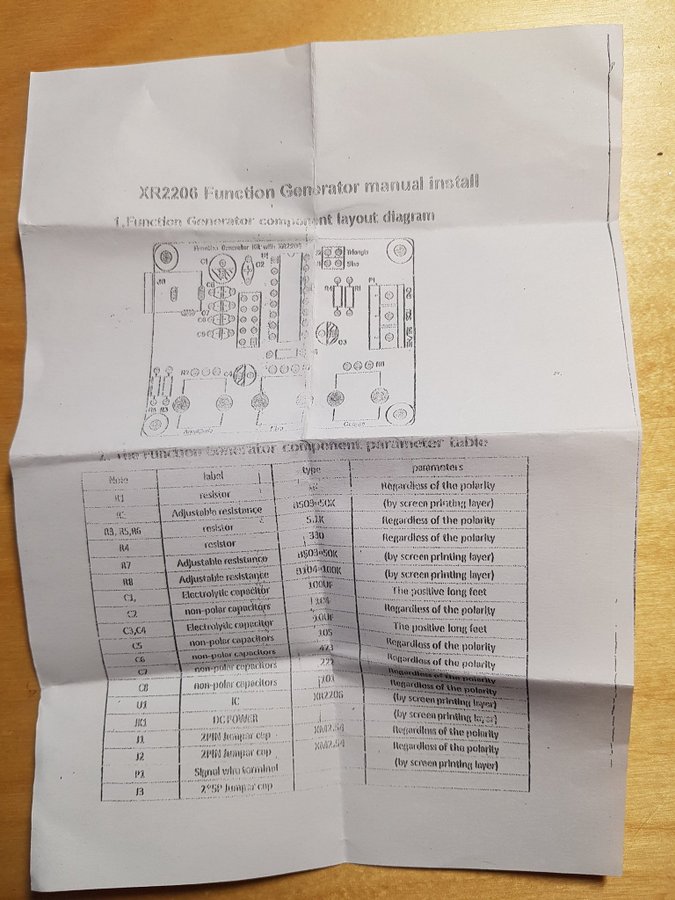 XR2206 Function Generator manual install
1.Function Generator component layout diagram
Function Generator Kit with XR2206
C1 C2 U1 J2 Triangle
J1 Sine
R4 R1 P1
C3
R7 R8
R5 R3
Amplitude Fine Coarse
2. The Function Generator component parameter table
Note label type parameters
R1 resistor Regardless of the polarity
Adjustable resistance B503=50K (by screen printing layer)
R3, R5,R6 resistor 5.1K Regardless of the polarity
R4 resistor 330 Regardless of the polarity
R7 Adjustable resistance B503=50K (by screen printing layer)
R8 Adjustable resistance B104=100K (by screen printing layer)
C1, Electrolytic capacitor 100UF The positive long feet
C2 non-polar capacitors Regardless of the polarity
C3,C4 Electrolytic capacitor 10UF The positive long feet
C5 non-polar capacitors 105 Regardless of the polarity
C6 non-polar capacitors 473 Regardless of the polarity
C7 non-polar capacitors 222 Regardless of the polarity
C8 non-polar capacitors 101 Regardless of the polarity
U1 IC XR2206 (by screen printing layer)
JK1 DC POWER (by screen printing layer)
J1 2PIN Jumpar cap XM2.54 Regardless of the polarity
J2 2PIN Jumpar cap XM2.54 Regardless of the polarity
P1 Signal wire terminal (by screen printing layer)
J3 2*5P Jumpar cap